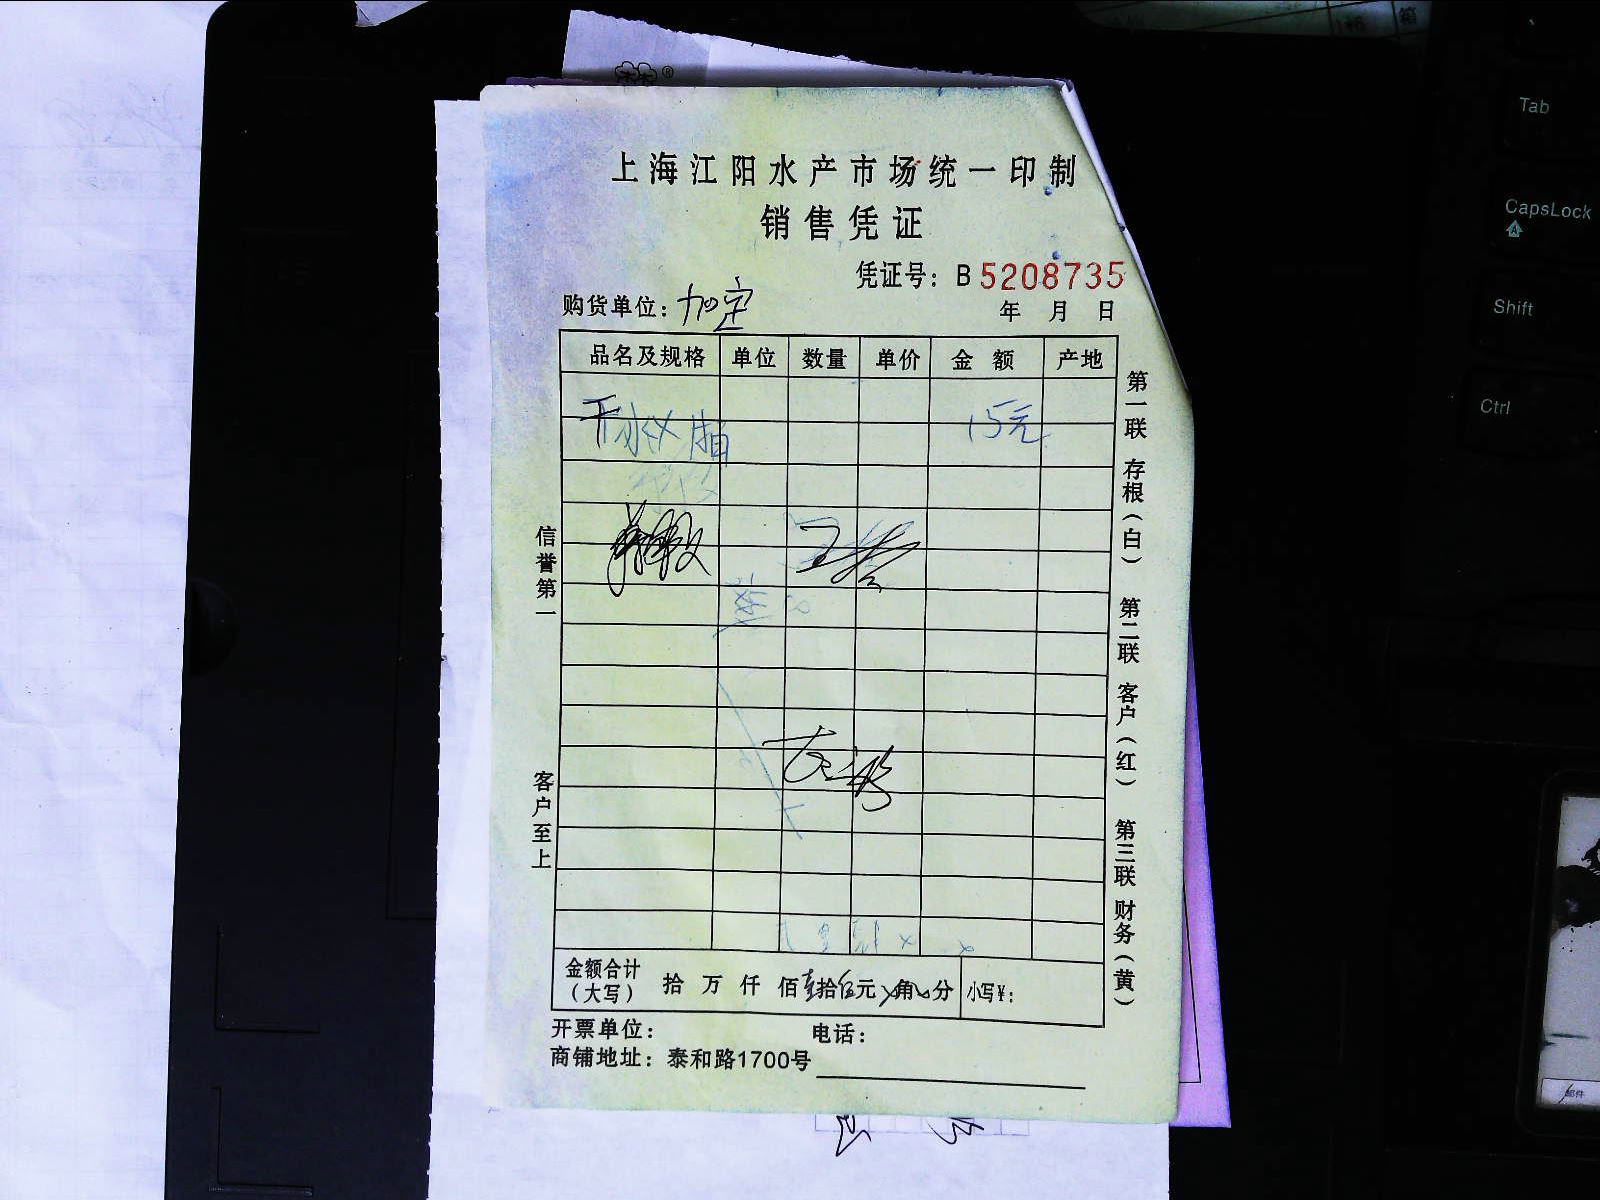 上海江阳水产市场统一印制
销售凭证
凭证号：B 5208735
购货单位：加定
年 月 日
品名及规格 单位 数量 单价 金额 产地
15元
金额合计（大写） 拾 万 仟 佰壹拾伍元 角 分 小写¥：
开票单位： 电话：
商铺地址：泰和路1700号
信誉第一 客户至上
第一联 存根（白） 第二联 客户（红） 第三联 财务（黄）
Tab
CapsLock
Shift
Ctrl
邮件